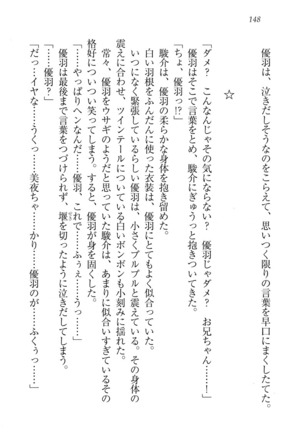 148
優羽は、泣きだしそうなのをこらえて、思いつく限りの言葉を早口にまくしたてた。
☆
「ダメ? こんなんじゃその気にならない? 優羽じゃダメ? お兄ちゃん……!」
優羽はそこで言葉をとめると、駿介にぎゅうっと抱きついてきた。
「ちょ、優羽っ!?」
駿介は、優羽の柔らかな身体を抱き留めた。
白い羽根をふんだんに使った衣装は、優羽にとてもよく似合っていた。
いつになく緊張しているらしい優羽は、小さくプルプルと震えている。その身体の
震えに合わせ、ツインテールについている白いボンボンも小刻みに揺れた。
常々、優羽をウサギのようだと思っていた駿介は、あまりに似合いすぎている
格好についつい笑ってしまう。すると、優羽が身を固くした。
「……やっぱりヘンなんだ……優羽、これで……ふぇ……うっ……」
優羽は最後まで言葉をつづけられず、堰を切ったように泣きだしてしまう。
「優羽?」
「だっ…イヤな……うくっ…美夜ちゃ……かり……優羽のが……ふくぅっ……」